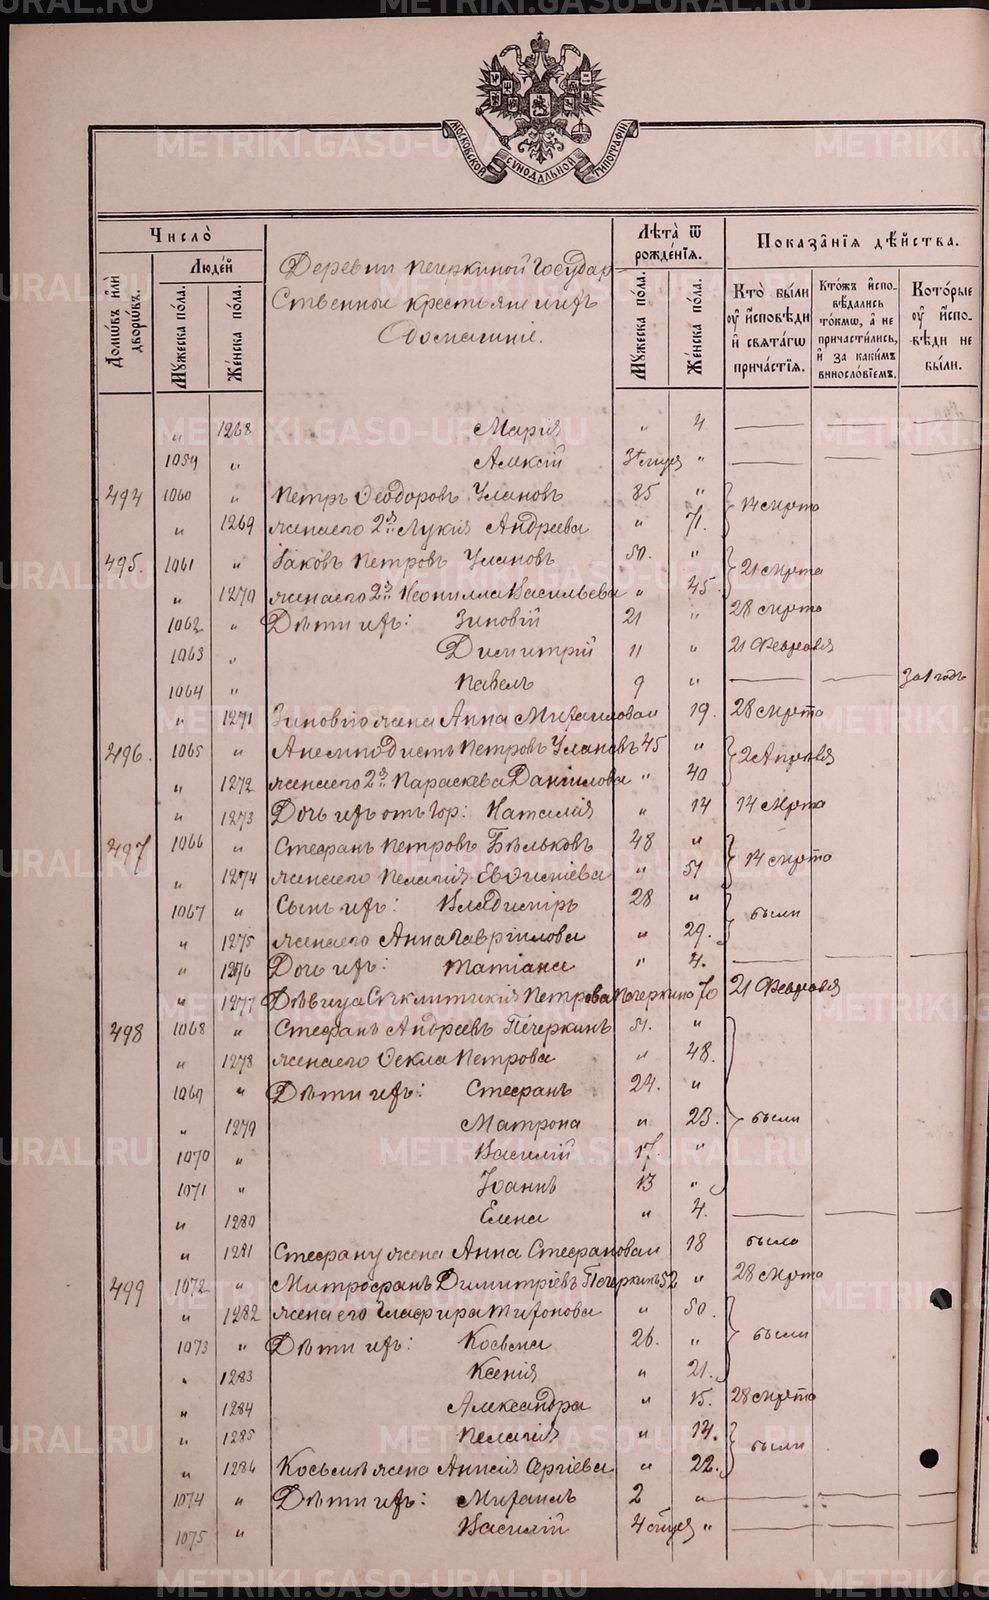 МОСКОВСКОЙ СУНОДАЛЬНОЙ ТИПОГРАФІИ
Число̀
Домѡ́въ и҆лѝ дворѡ́въ.
Люде́й
Мꙋ́жеска по́ла.
Же́нска по́ла.
Деревни Печеркиной Государ-
ственные крестьяне и ихъ
домашніе.
Лѣ́та ѿ рожде́нія.
Мꙋ́жеска по́ла.
Же́нска по́ла.
Показа̑нія дѣ́йства.
Кто̀ бы́ли оу҆ и҆сповѣди и҆ свята́гѡ прича́стія.
Кто́жъ и҆спо-вѣ́дались то́кмѡ, а҆ не причасти́лись, и҆ за каки́мъ винословіемъ.
Кото́рые оу҆ и҆спо-вѣди не бы́ли.
" 1268 Марія " 4
1059 " Алексій "
494 1060 " Петръ Ѳеодоровъ Улановъ 85 " 14 марта
" 1269 жена его 2я Лукія Андреева " 71.
495. 1061 " Іаковъ Петровъ Улановъ 50. " 21 марта
" 1270 жена его 2я Неонилла Васильева " 45
1062 " Дѣти ихъ: Зиновій 21 " 28 марта
1063 " Димитрій 11 " 21 Февраля
1064 " Павелъ 9 " за 1 годъ
" 1271 Зиновію жена Анна Михаиловаи 19. 28 марта
496. 1065 " Анемподистъ Петровъ Улановъ 45 " 2 Апрѣля
" 1272 жена его 2я Параскева Даніилова " 40
" 1273 Дочь ихъ отъ Iбр: Наталія " 14 14 марта
497 1066 " Стефанъ Петровъ Бѣльковъ 48 " 14 марта
" 1274 жена его Пелагія Евѳиміева " 51
1067 " Сынъ ихъ: Владиміръ 28 " были
" 1275 жена его Анна Гавріилова " 29.
" 1276 Дочь ихъ: Татіана " 4.
" 1277 Дѣвица Сигклитикія Петрова Печеркина 70 21 Февраля
498 1068 " Стефанъ Андреевъ Печеркинъ 51. "
" 1278 жена его Ѳекла Петрова " 48.
1069 " Дѣти ихъ: Стефанъ 24. "
" 1279 Матрона " 23. были
1070 " Василій 17. "
1071 " Іоаннъ 13 "
" 1280 Елена " 4.
" 1281 Стефану жена Анна Стефановаи 18 была
499 1072 " Митрофанъ Димитріевъ Печеркинъ 52 " 28 марта
" 1282 жена его Глафира Тихонова " 50.
1073 " Дѣти ихъ: Косьма 26. " были
" 1283 Ксенія " 21.
" 1284 Александра " 15. 28 марта
" 1285 Пелагія " 14. были
" 1286 Косьмѣ жена Анисія Сергіева " 22.
1074 " Дѣти ихъ: Михаилъ 2 "
1075 " Василій "
METRIKI.GASO-URAL.RU